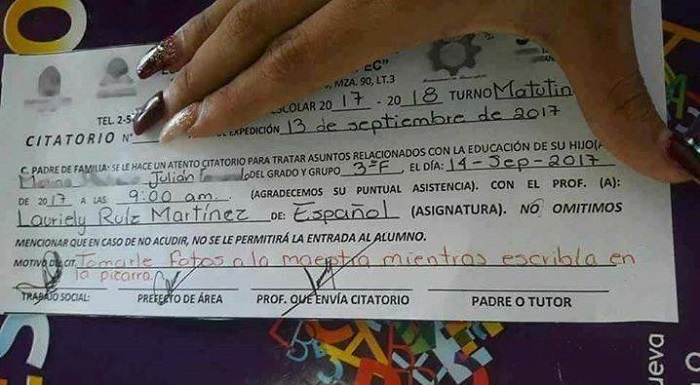 EC"
, MZA. 90, LT.3
TEL. 2-5
COLAR 20 17 - 20 18 TURNO Matutin
CITATORIO N° EXPEDICIÓN 13 de septiembre de 2017
C. PADRE DE FAMILIA: SE LE HACE UN ATENTO CITATORIO PARA TRATAR ASUNTOS RELACIONADOS CON LA EDUCACIÓN DE SU HIJO(A
Julián DEL GRADO Y GRUPO 3°F, EL DÍA: 14-Sep-2017
DE 2017 A LAS 9:00 am. (AGRADECEMOS SU PUNTUAL ASISTENCIA). CON EL PROF. (A):
Lauriely Ruíz Martínez DE: Español (ASIGNATURA). NO OMITIMOS
MENCIONAR QUE EN CASO DE NO ACUDIR, NO SE LE PERMITIRÁ LA ENTRADA AL ALUMNO.
MOTIVO DE CIT. Tomarle fotos a la maestra mientras escribía en
la pizarra.
TRABAJO SOCIAL: PREFECTO DE ÁREA PROF. QUE ENVÍA CITATORIO PADRE O TUTOR
ueva